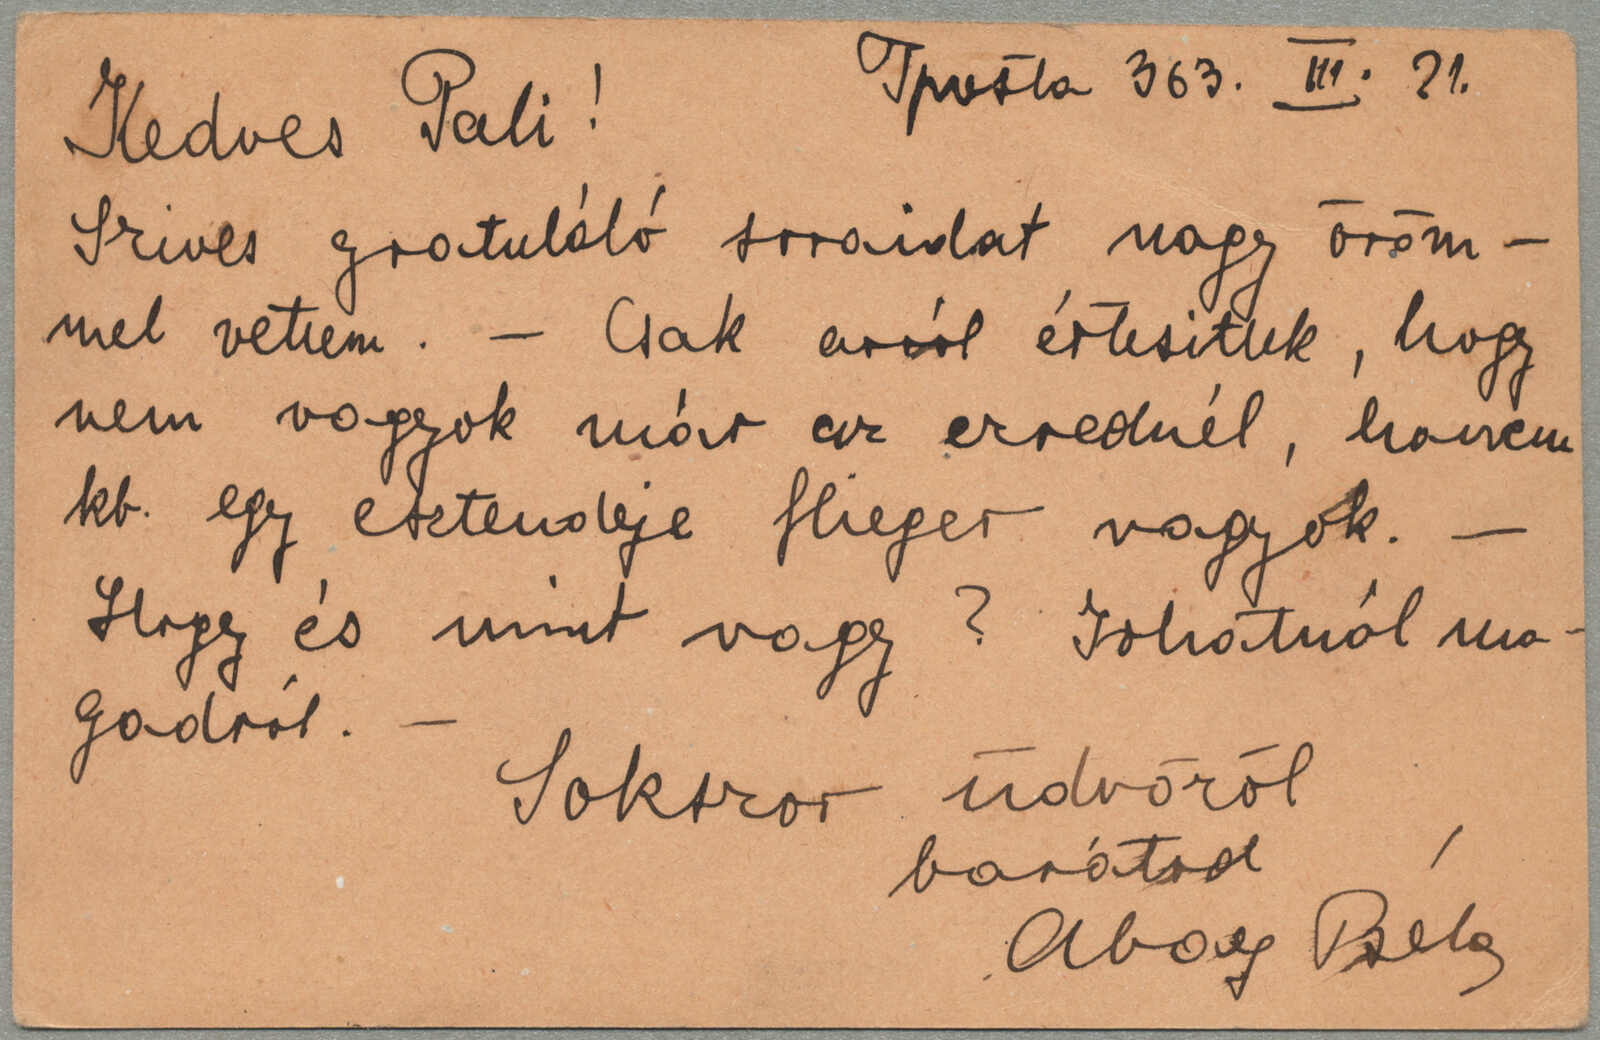 Tposta 363. III. 21.
Kedves Pali!
Szives gratuláló soraidat nagy öröm-
mel vettem. — Csak arról értesitlek, hogy
nem vagyok már az ezrednél, hanem
kb. egy esztendeje flieger vagyok. —
Hogy és mint vagy? Irhatnál ma-
gadról. —
Sokszor üdvözöl
barátod
Abay Béla